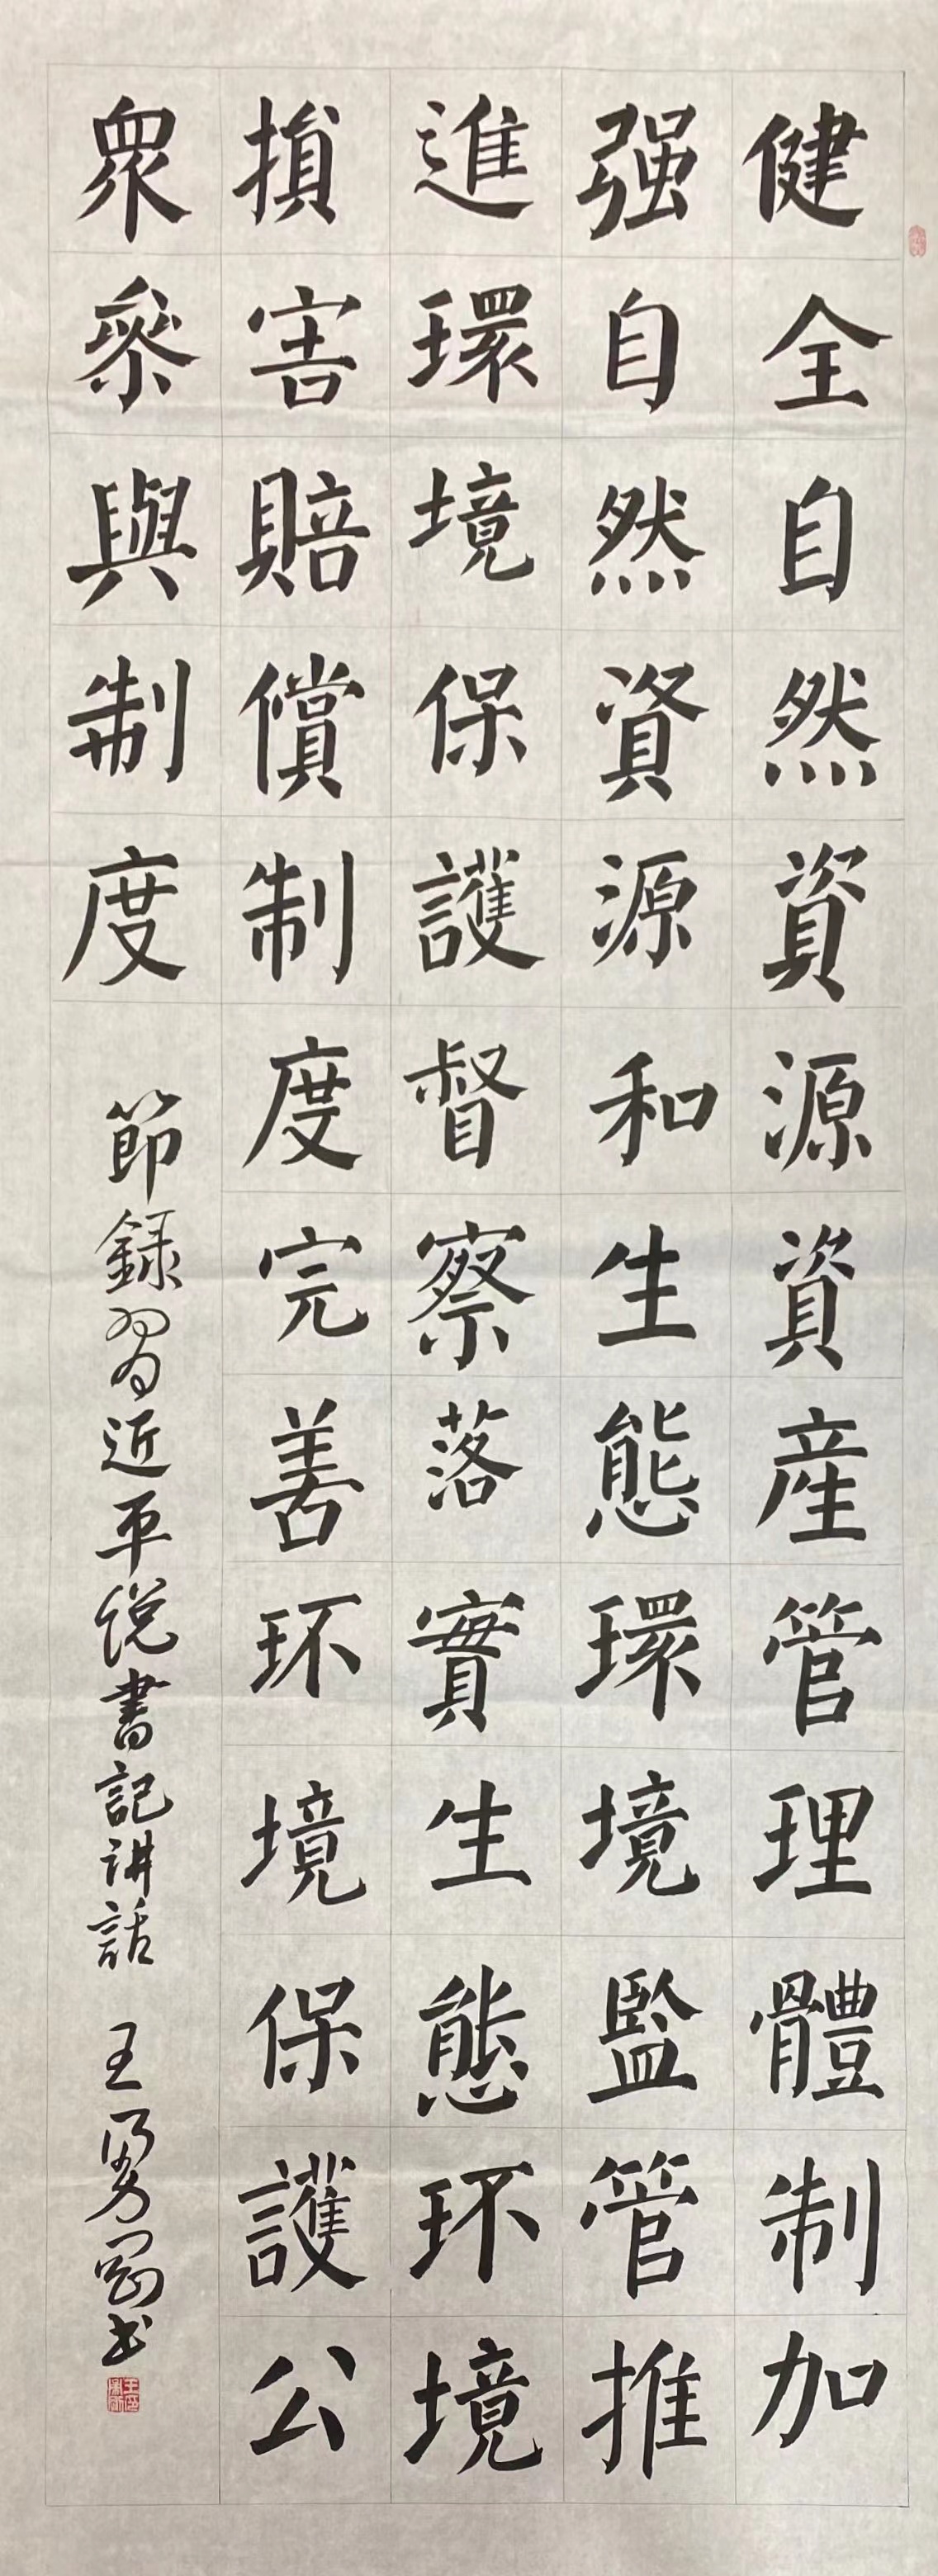 健全自然資源資産管理體制加
强自然資源和生態環境監管推
進環境保護督察落實生態环境
損害賠償制度完善环境保護公
衆參與制度
節録習近平说書記讲話 王勇剛书